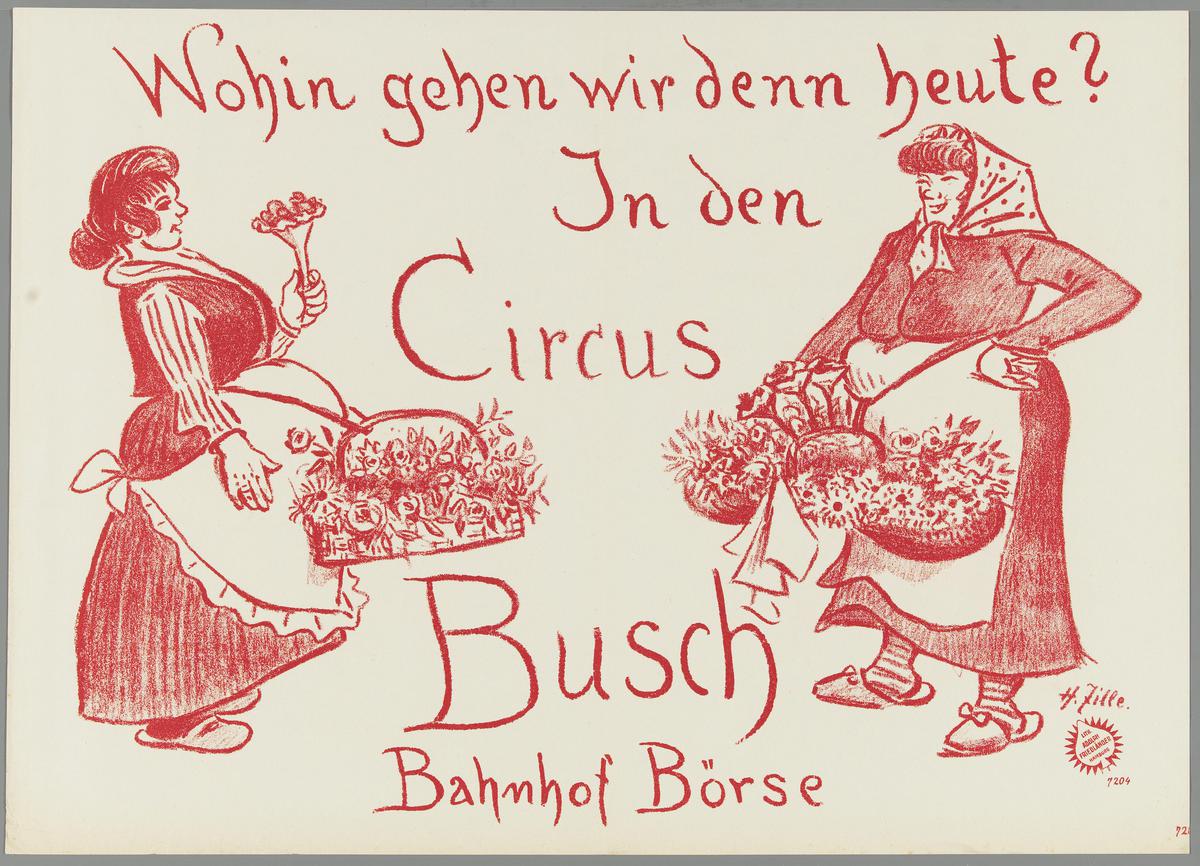 Wohin gehen wir denn heute?
In den
Circus
Busch
Bahnhof Börse
H. Zille.
LITH.
ADOLPH
FRIEDLÄNDER
HAMBURG
7204